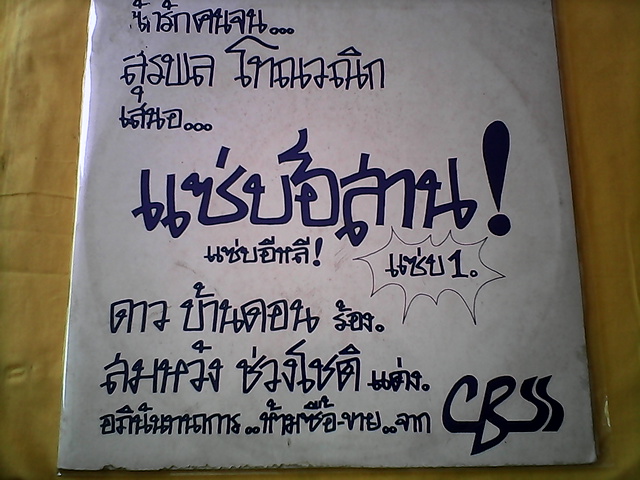 น้ำรักคนจน...
สุรพล โทณวณิก
เสนอ...
แซ่บอีสาน!
แซ่บอีหลี!
แซ่บ 1.
ดาว บ้านดอน ร้อง.
สมหวัง ช่วงโชติ แต่ง.
อภินันทนาการ..ห้ามซื้อ-ขาย..จาก CBSS